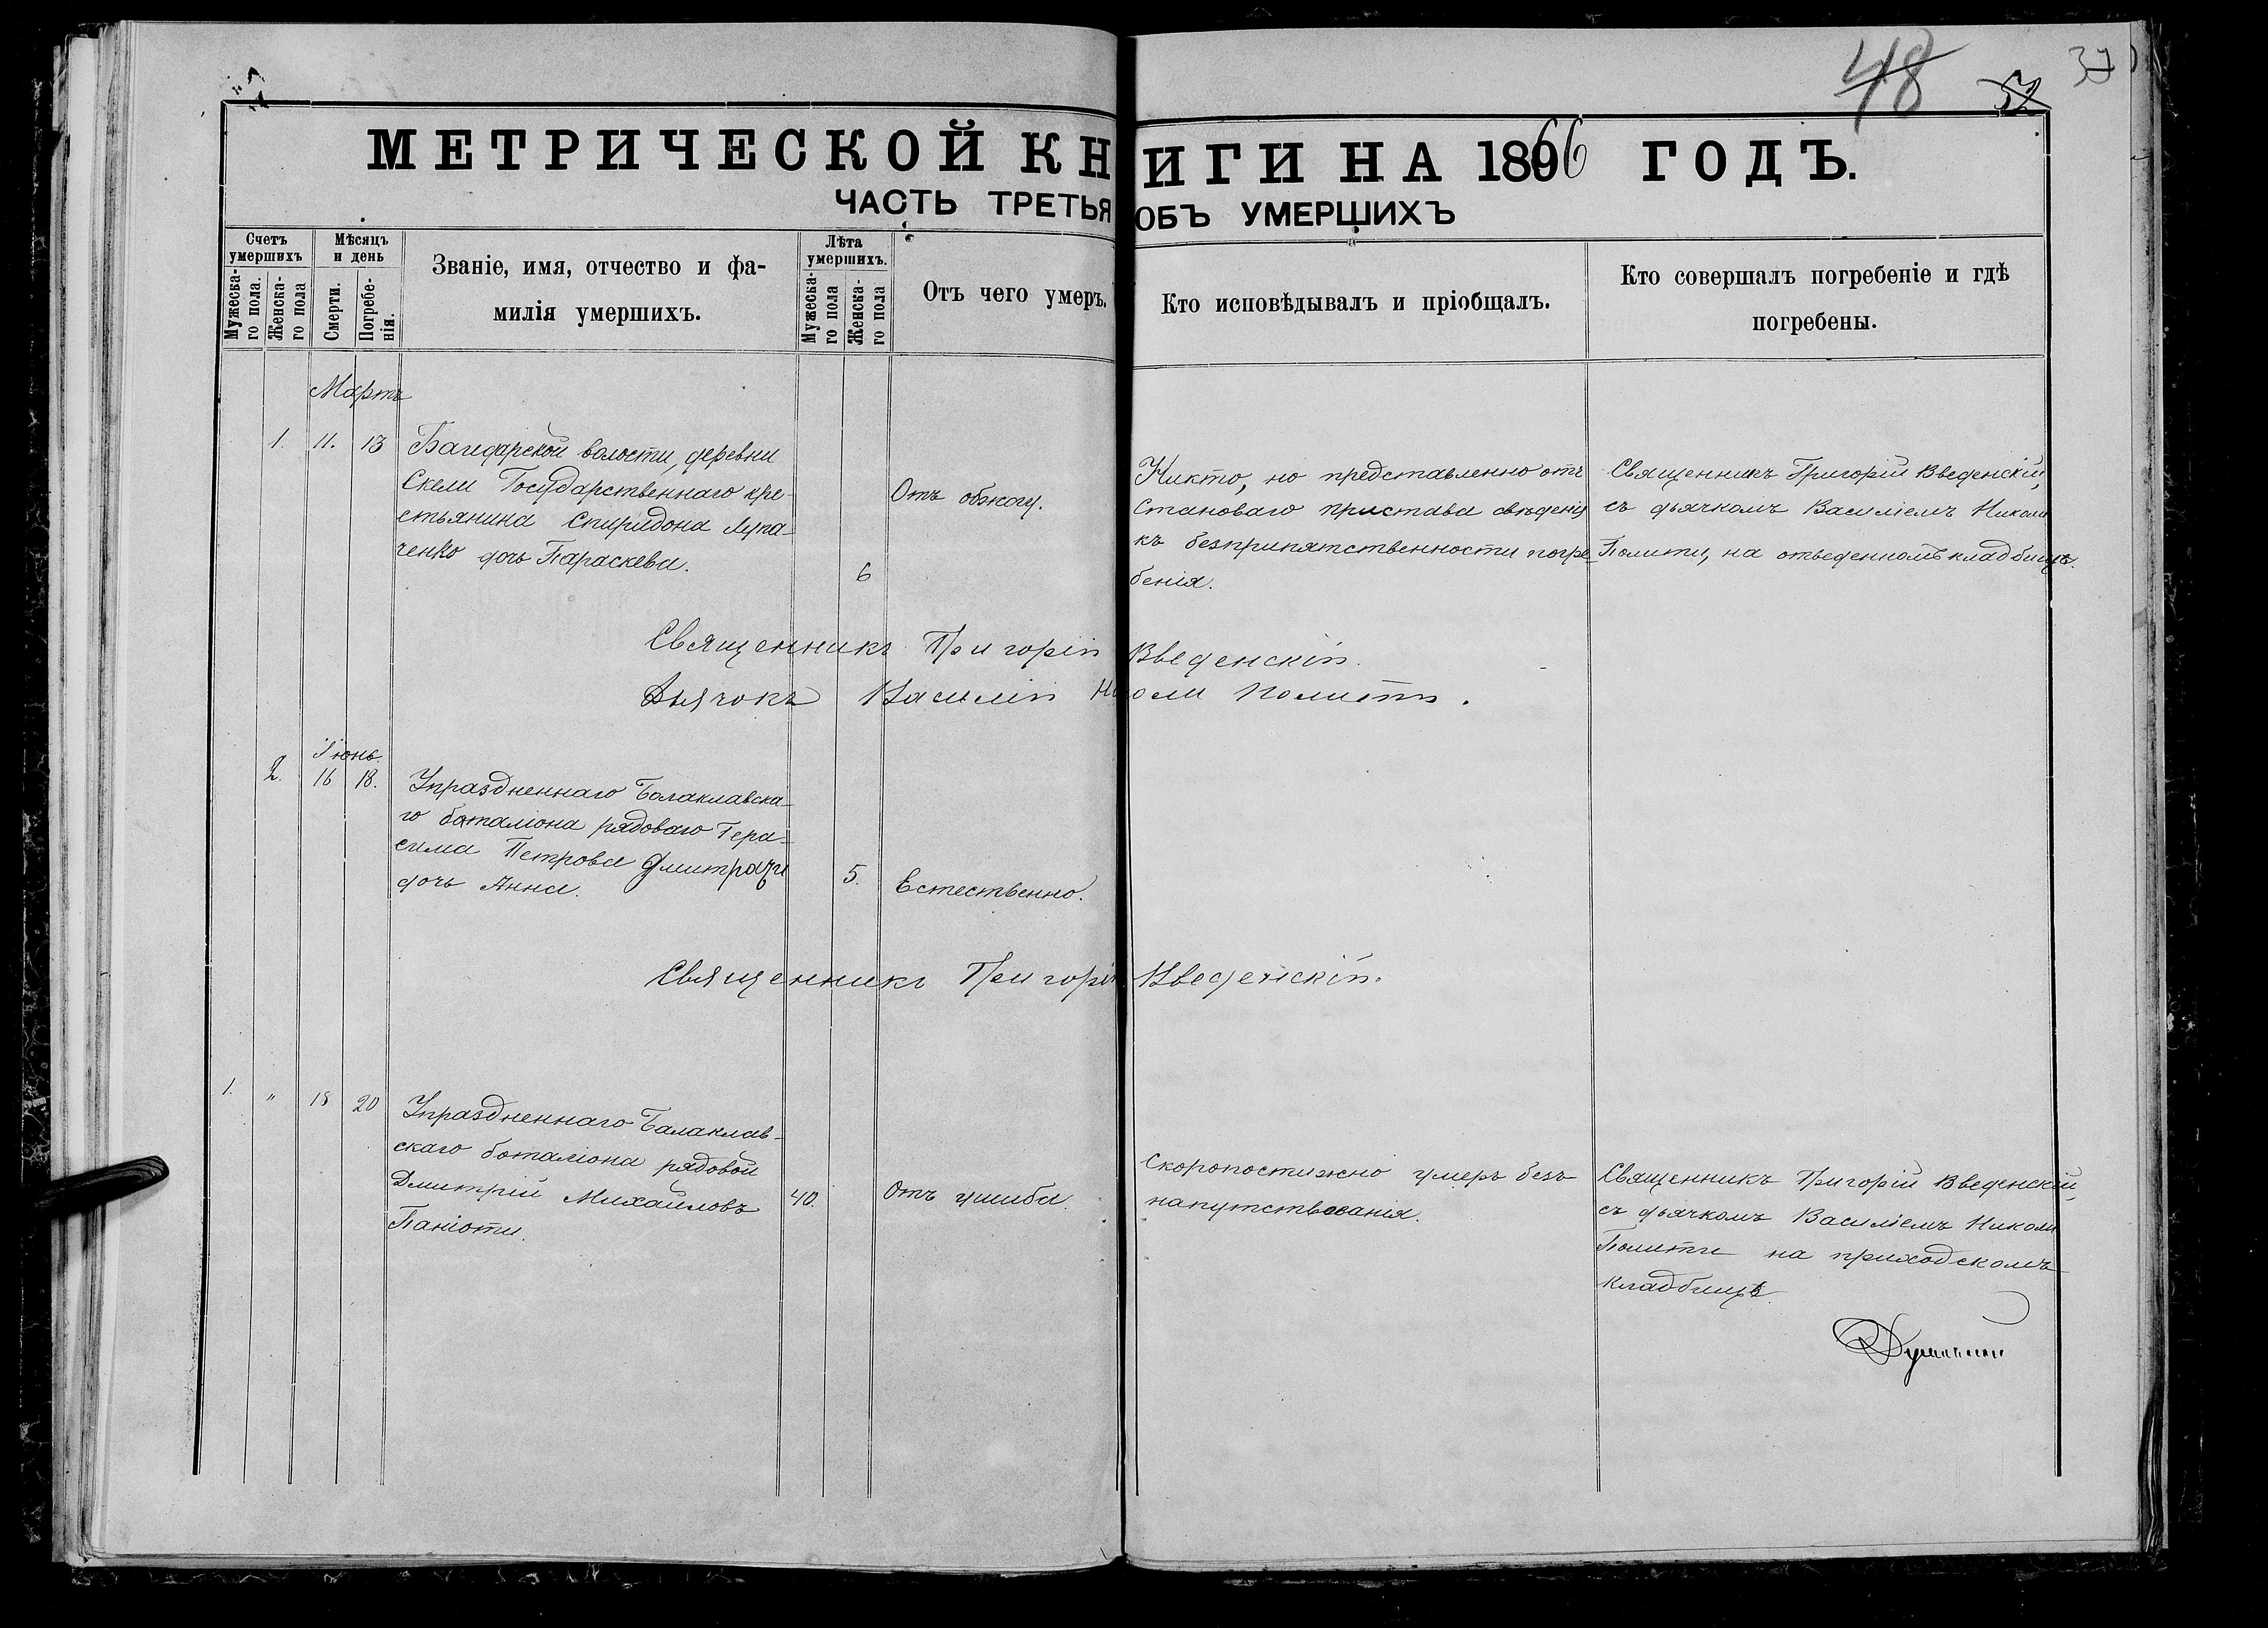 48 52 37
МЕТРИЧЕСКОЙ КНИГИ НА 1866 ГОДЪ.
ЧАСТЬ ТРЕТЬЯ ОБЪ УМЕРШИХЪ
Счетъ умершихъ
Мужеска-го пола.
Женска-го пола
Мѣсяцъ и день
Смерти.
Погребе-нія.
Званіе, имя, отчество и фа-
милія умершихъ.
Лѣта умершихъ.
Мужеска-го пола
Женска-го пола
Отъ чего умеръ.
Кто исповѣдывалъ и пріобщалъ.
Кто совершалъ погребеніе и гдѣ
погребены.
Мартъ
1. 11. 13
Байдарской волости, деревни
Скели Государственнаго кре-
стьянина Спиридона Лупа-
ченко дочь Параскева.
6
Отъ обжогу.
Никто, но представленно отъ
Становаго пристава свѣденія
къ безприпятственности погре-
бенія.
Священникъ Григорій Введенскій,
съ дьячкомъ Василіемъ Николи
Политти, на отведенномъ кладбищѣ.
Священникъ Григорій Введенскій.
Дьячокъ Василій Николи Политти.
Іюнь.
2. 16 18.
Упраздненнаго Балаклавска-
го баталіона рядоваго Гера-
сима Петрова Дмитраки
дочь Анна.
5.
Естественно.
Священникъ Григорій Введенскій.
1. " 18 20
Упраздненнаго Балаклав-
скаго боталіона рядовой
Дмитрій Михайловъ
Паніоти.
40.
Отъ ушиба.
Скоропостижно умеръ безъ
напутствованія.
Священникъ Григорій Введенскій,
съ дьячкомъ Василіемъ Николи
Политти на приходскомъ
кладбищѣ.